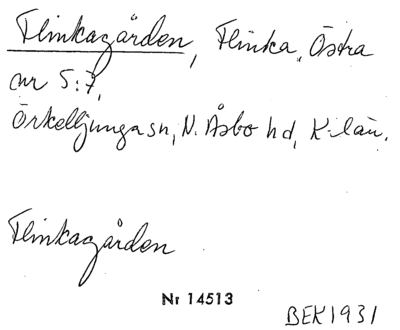 Flinkagården, Flinka, Östra
nr 5:7,
Örkelljunga sn, N. Åsbo hd, K-län.
Flinkagården
Nr 14513
BEK 1931